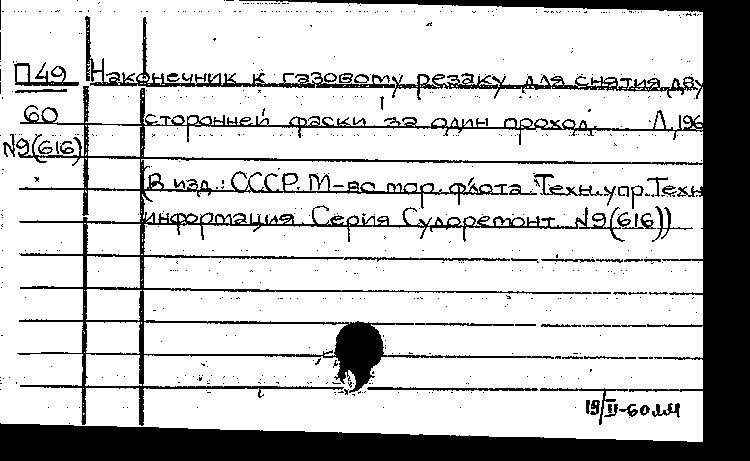 П49 Наконечник к газовому резаку для снятия дву
60 сторонней фаски за один проход. Л, 196
N9(616)
(В изд.: СССР. М-во мор. флота. Техн. упр. Техн
информация. Серия Судоремонт. N9(616))
19/II-60